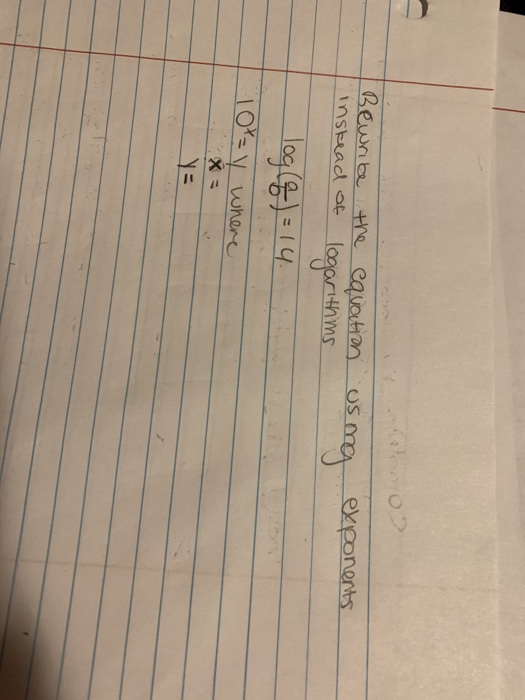 Rewrite the equation using exponents
instead of logarithms
log(a/b) = 14.
10ˣ = y where
x =
y =